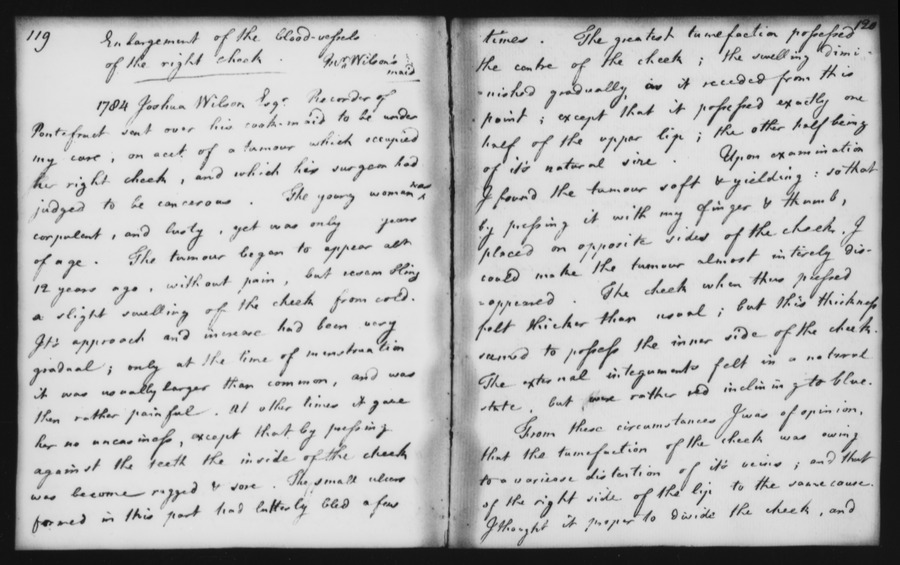 119
Enlargement of the blood-vessels
of the right cheek. Mr Wilson's
maid
1784 Joshua Wilson Esqr. Recorder of
Pontefract sent over his cook-maid to be under
my care, on acct. of a tumour which occupied
her right cheek, and which his surgeon had
judged to be cancerous. The young woman was
corpulent, and lusty, yet was only years
of age. The tumour began to appear abt.
12 years ago, without pain, but resembling
a slight swelling of the cheek from cold.
Its approach and increase had been very
gradual; only at the time of menstruation
it was usually larger than common, and was
then rather painful. At other times it gave
her no uneasiness, except that by pressing
against the teeth the inside of the cheek
was become ragged & sore. The small ulcers
formed in this part had latterly bled a few
120
times. The greatest tumefaction possessed
the centre of the cheek; the swelling dimi-
-nished gradually, as it receded from this
point; except that it possessed exactly one
half of the upper lip; the other half being
of its natural size. Upon examination
I found the tumour soft & yielding: so that
by pressing it with my finger & thumb,
placed on opposite sides of the cheek, I
could make the tumour almost intirely dis-
-appeared. The cheek when thus pressed
felt thicker than usual; but this thickness
seemed to possess the inner side of the cheek.
The external integuments felt in a natural
state, but were rather red inclining to blue.
From these circumstances I was of opinion,
that the tumefaction of the cheek was owing
to a varicose distention of its veins; and that
of the right side of the lip to the same cause.
I thought it proper to divide the cheek, and